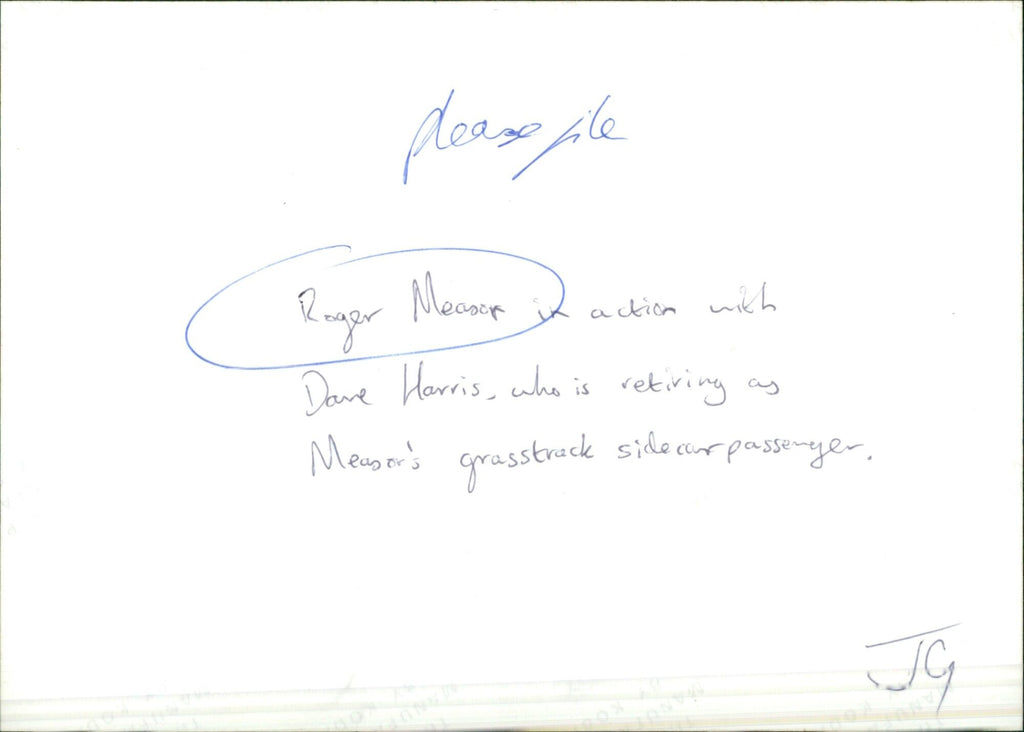 please file
Roger Measor in action with
Dave Harris, who is retiring as
Measor's grasstrack sidecar passenger.
JG